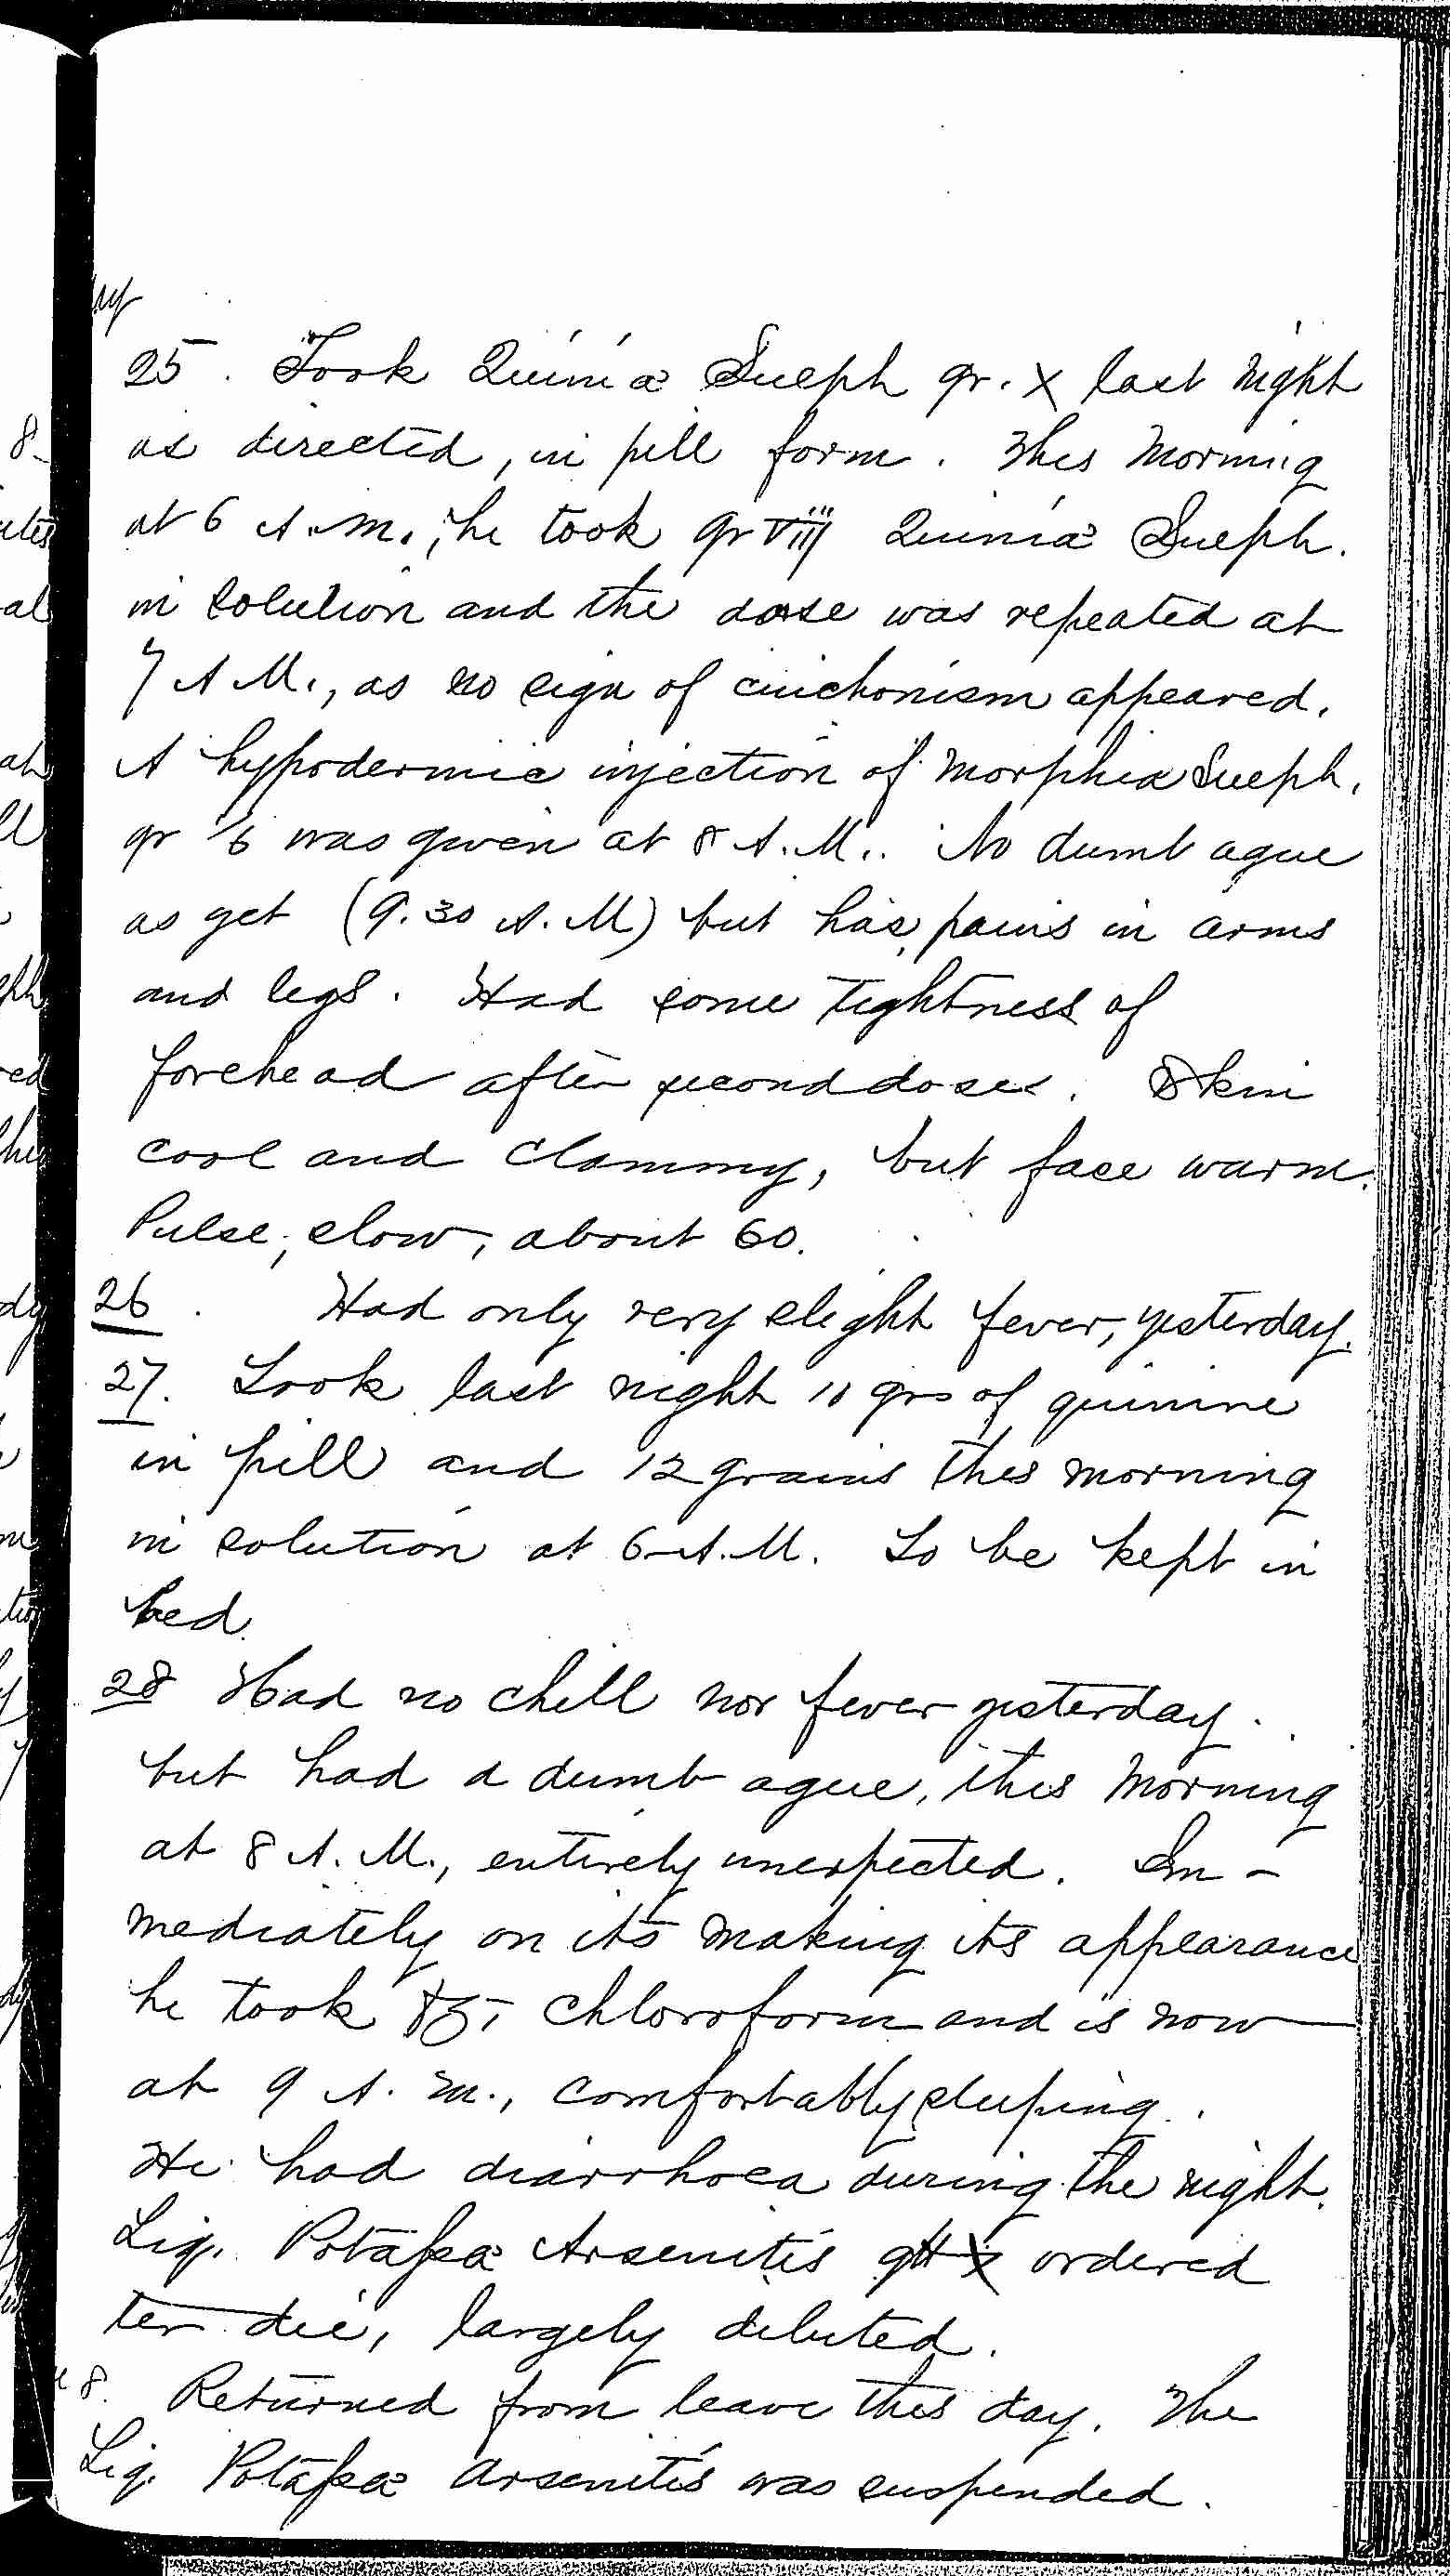 25. Took Quiniæ Sulph gr. X last night
as directed, in pill form. This morning
at 6 A.M., he took gr viij Quiniæ Sulph.
in solution and the dose was repeated at
7 A.M., as no sign of cinchonism appeared.
A hypodermic injection of Morphia Sulph.
gr 1/6 was given at 8 A.M.. No dumb ague
as yet (9.30 A.M) but has pains in arms
and legs. Had some tightness of
forehead after second dose. Skin
cool and clammy, but face warm.
Pulse, slow, about 60.
26. Had only very slight fever, yesterday.
27. Took last night 10 grs of quinine
in pill and 12 grains this morning
in solution at 6 A.M. To be kept in
bed.
28 Had no chill nor fever yesterday.
but had a dumb ague, this morning
at 8 A.M., entirely unexpected. Im-
mediately on its making its appearance
he took ʒi chloroform and is now
at 9 A.M., comfortably sleeping.
He had diarrhoea during the night.
Liq. Potassæ Arsenitis gtt x ordered
ter die, largely diluted.
8. Returned from leave this day. The
Liq. Potassæ Arsenitis was suspended.